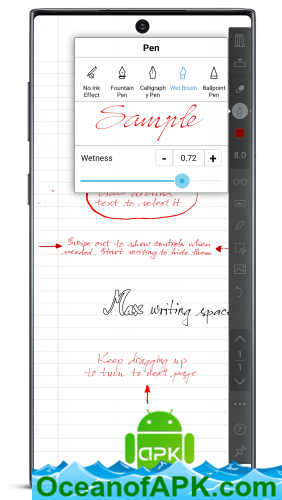 Pen
No Ink Effect
Fountain Pen
Calligraphy Pen
Wet Brush
Ballpoint Pen
Sample
Wetness - 0.72 +
8.0
text to select it
Swipe out to show controls when
needed. Start writing to hide them
Max writing space
Keep dragging up
to turn to next page
1
1
APK
OceanofAPK.com